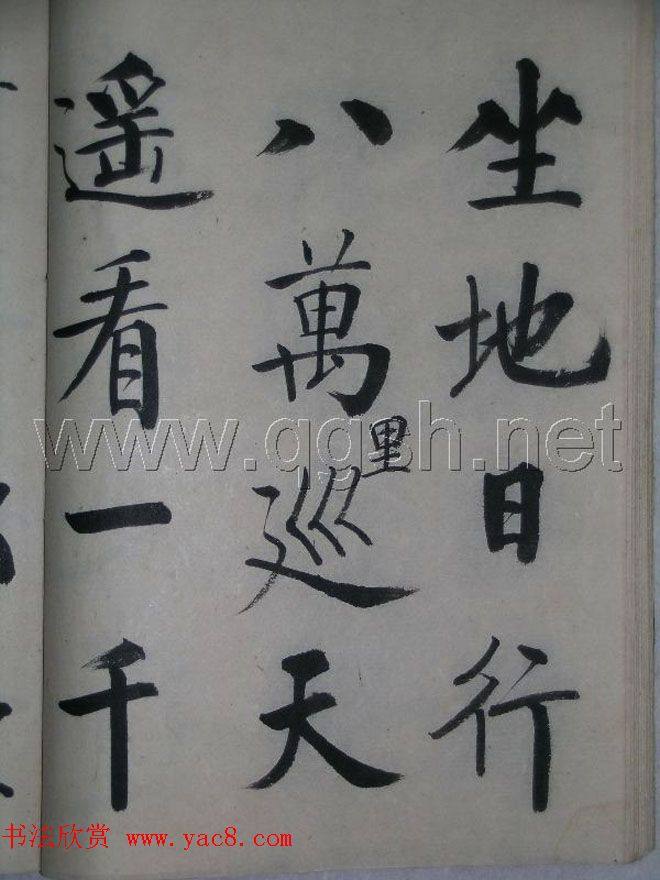 坐地日行
八萬里巡天
遥看一千
www.qgsh.net
书法欣赏 www.yac8.com